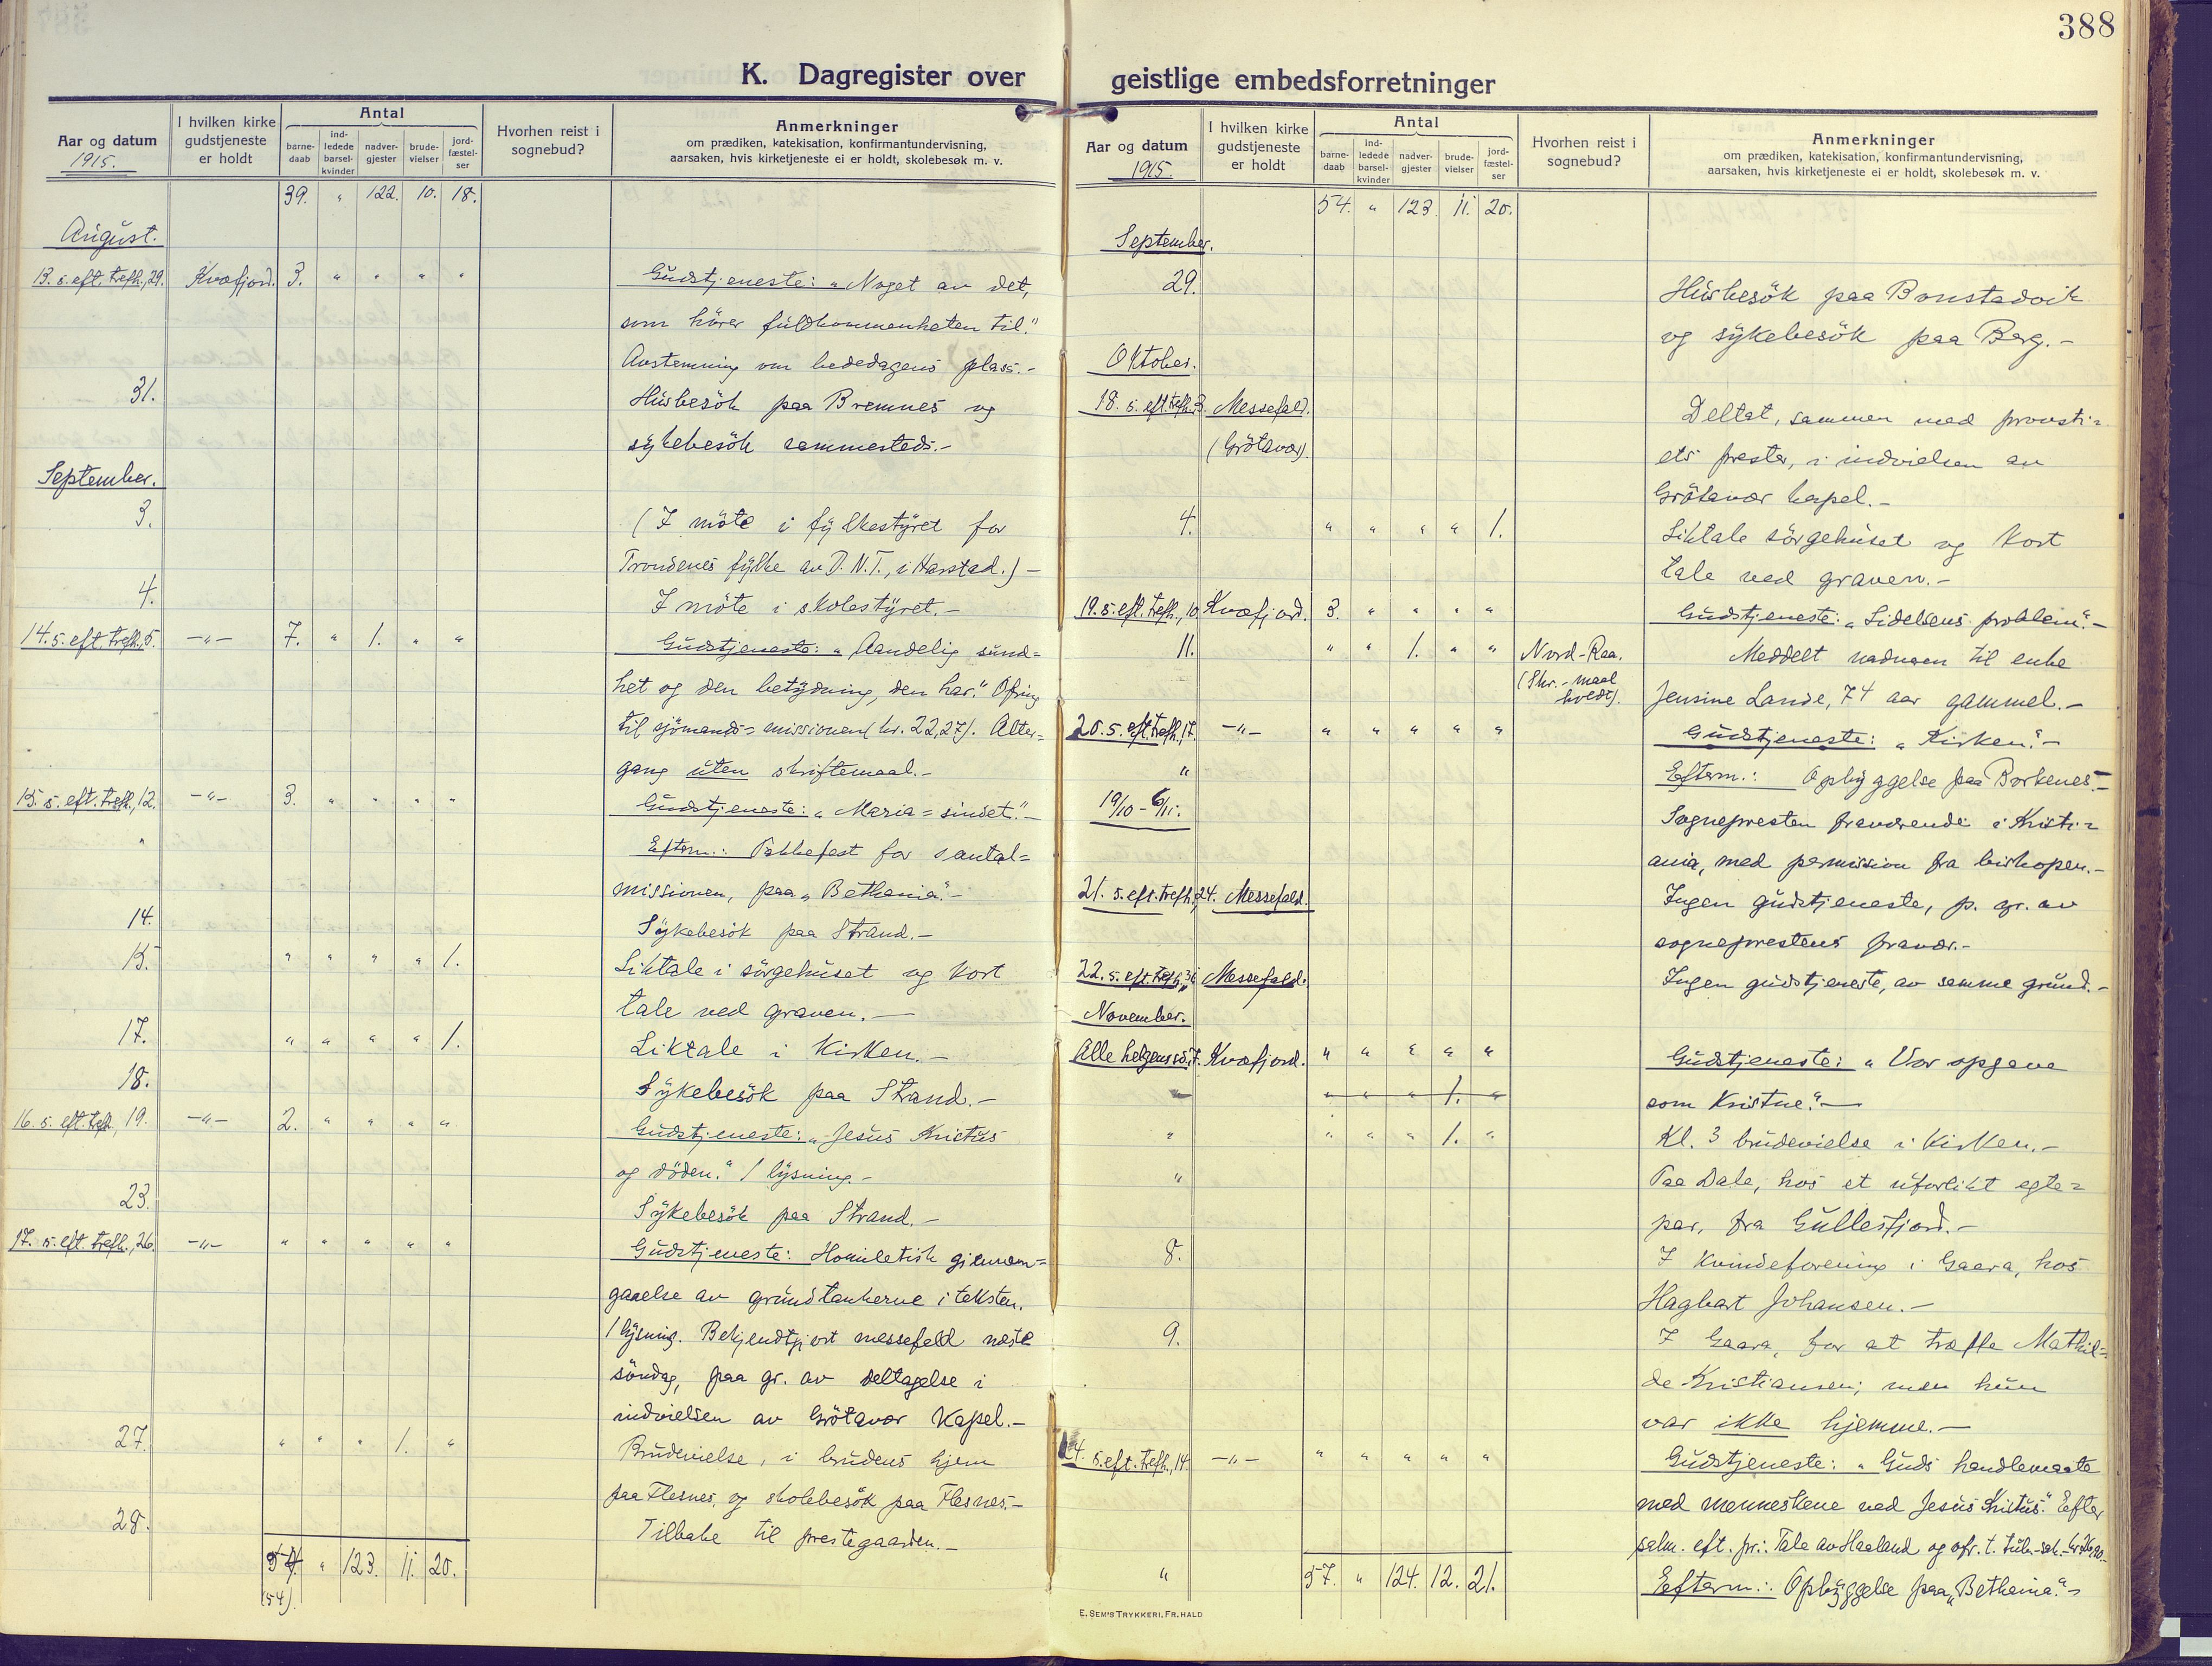 388
K. Dagregister over geistlige embedsforretninger
Aar og datum
1915.
I hvilken kirke gudstjeneste er holdt
Antal
barnedaab
indledede barselkvinder
nadvergjester
brudevielser
jordfæstelser
Hvorhen reist i sognebud?
Anmerkninger
om prædiken, katekisation, konfirmantundervisning, aarsaken, hvis kirketjeneste ei er holdt, skolebesøk m. v.
39. " 122. 10. 18.
August.
13. s. eft. trefh., 29. Kvæfjord. 3. " " " " Gudstjeneste: "Noget av det,
som hörer fuldkommenheten til."
Avstemning om bededagens plass.-
31. Husbesök paa Bremnes og
sykebesök sammesteds.-
September.
3. (I möte i fylkestyret for
Trondenes fylke av D. N. T., i Harstad.) -
4. I möte i skolestyret.-
14. s. eft. trefh., 5. -"- 7. " 1. " " Gudstjeneste: "Aandelig sund=
het og den betydning, den har." Ofring
til sjömands=missionen (kr. 22,27). Alter=
gang uten skriftemaal.-
15. s. eft. trefh., 12. -"- 3. " " " " Gudstjeneste: "Maria=sindet."-
" Efterm.: Takkefest for santal=
missionen, paa "Bethania".-
14. Sykebesök paa Strand.-
15. " " " " 1. Liktale i sörgehuset og kort
tale ved graven.-
17. " " " " 1. Liktale i Kirken.-
18. Sykebesök paa Strand.-
16. s. eft. trefh., 19. -"- 2. " " " " Gudstjeneste: "Jesus Kristus
og döden." 1 lysning.-
23. Sykebesök paa Strand.-
17. s. eft. trefh., 26. -"- " " " " " Gudstjeneste: Homiletisk gjennem=
gaaelse av grundtankerne i teksten.
1 lysning. Bekjendtgjort messefald næste
söndag, paa gr. av deltagelse i
indvielsen av Grötavær Kapel.-
27. " " " 1. " Brudevielse, i brudens hjem
paa Flesnes, og skolebesök paa Flesnes.-
28. Tilbake til prestegaarden.-
" 123. 11. 20.
(54).
Aar og datum
1915.
I hvilken kirke gudstjeneste er holdt
Antal
barnedaab
indledede barselkvinder
nadvergjester
brudevielser
jordfæstelser
Hvorhen reist i sognebud?
Anmerkninger
om prædiken, katekisation, konfirmantundervisning, aarsaken, hvis kirketjeneste ei er holdt, skolebesøk m. v.
54. " 123. 11. 20.
September.
29. Husbesök paa
og sykebesök paa Berg.-
Oktober.
18. s. eft. trefh. 3. Messefald. Deltat, sammen med provsti=
(Grötavær). ets prester, i indvielsen av
Grötavær kapel.-
4. " " " " 1. Liktale sörgehuset og kort
tale ved graven.-
19. s. eft. trefh., 10. Kvæfjord. 3. " " " " Gudstjeneste: "Lidelsens problem".-
11. " " 1. " " Nord-Raa. Meddelt nadveren til enke
(Skr.-maal holdt). Jensine Lande, 74 aar gammel.-
20. s. eft. trefh., 17. -"- " " " " " Gudstjeneste: "Kirken".-
" Efterm.: Opbyggelse paa Borkenes.-
19/10 - 6/11. Sognepresten fraværende i Kristi=
ania, med permission fra biskopen.-
21. s. eft. trefh., 24. Messefald. Ingen gudstjeneste, p. gr. av
sogneprestens fravær.-
22. s. eft. trefh., 31. Messefald. Ingen gudstjeneste, av samme grund.-
November.
Alle helgens sö. 7. Kvæfjord. " " " " " Gudstjeneste: "Vor opgave
" " " " 1. " som Kristne."-
" " " " 1. " Kl. 3 brudevielse i Kirken.-
" Paa Dale, hos et uforlikt egte=
par, fra Gullesfjord.-
8. I Kvindeforening i Gaara, hos
Hagbart Johansen.-
9. I Gaara, for at træffe Mathil=
de Kristiansen; men hun
var ikke hjemme.-
24. s. eft. trefh., 14. -"- " " " " " Gudstjeneste: "Guds handlemaate
med menneskene ved Jesus Kristus." Efter
salm. eft. pr.: Tale av Haaland og ofr. t.
" 57. " 124. 12. 21. Efterm.: Opbyggelse paa "Bethania".-
E. SEM'S TRYKKERI, FR. HALD